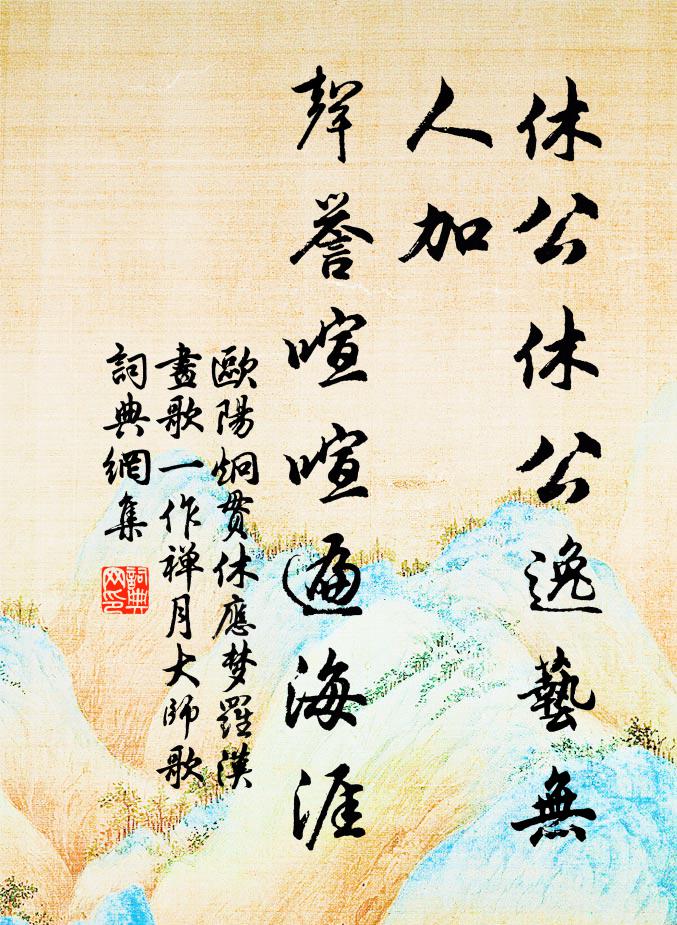 休公休公逸藝無
人加
聲譽喧喧遍海涯
歐陽炯貫休應梦羅漢
畫歌一作禅月大師歌
詞典網集
詞典
网印